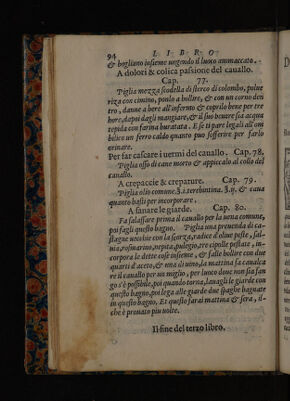 94 LIBRO
& bogliano insieme ungendo il luoco ammaccato.
A dolori & colica passione del cauallo.
Cap. 77.
Piglia mezza scodella di sterco di colombo, polue
riza con cimino, ponlo a bollire, & con un corno den
tro, danne a bere all'infermo & coprilo bene per tre
hore, dapoi dagli mangiare, & il suo beuere sia acqua
tepida con farina buratata. E se ti pare legali all'om
bilico un ferro caldo quanto può sofferire per farlo
orinare.
Per far cascare i uermi del cauallo. Cap. 78.
Piglia osso di cane morto & appiccalo al collo del
cauallo.
A crepaccie & crepature. Cap. 79.
Piglia olio comune ℥.i. terbintina. ℥.ij. & caua
quanto basti per incorporare.
A sanare le giarde. Cap. 80.
Fa salassare prima il cauallo per la uena comune,
poi fagli questo bagno. Piglia una
stagne uecchie con la scorza, radice d'ebuli peste, sal-
uia, rosmarino, nepita, pulegio, tre cipolle pestate, in-
corpora le dette cose insieme, & falle bollire con due
quarti d'aceto, & una di uino, la mattina fa caualca
re il cauallo per un miglio, per luoco doue non sia fan
go s'è possibile, poi quando torna, lauagli le giarde con
questo bagno, poi lega alle giarde due spaghe bagnate
in questo bagno, Et questo farai mattina & sera, il-
che è prouato piu uolte.
Il fine del terzo libro.